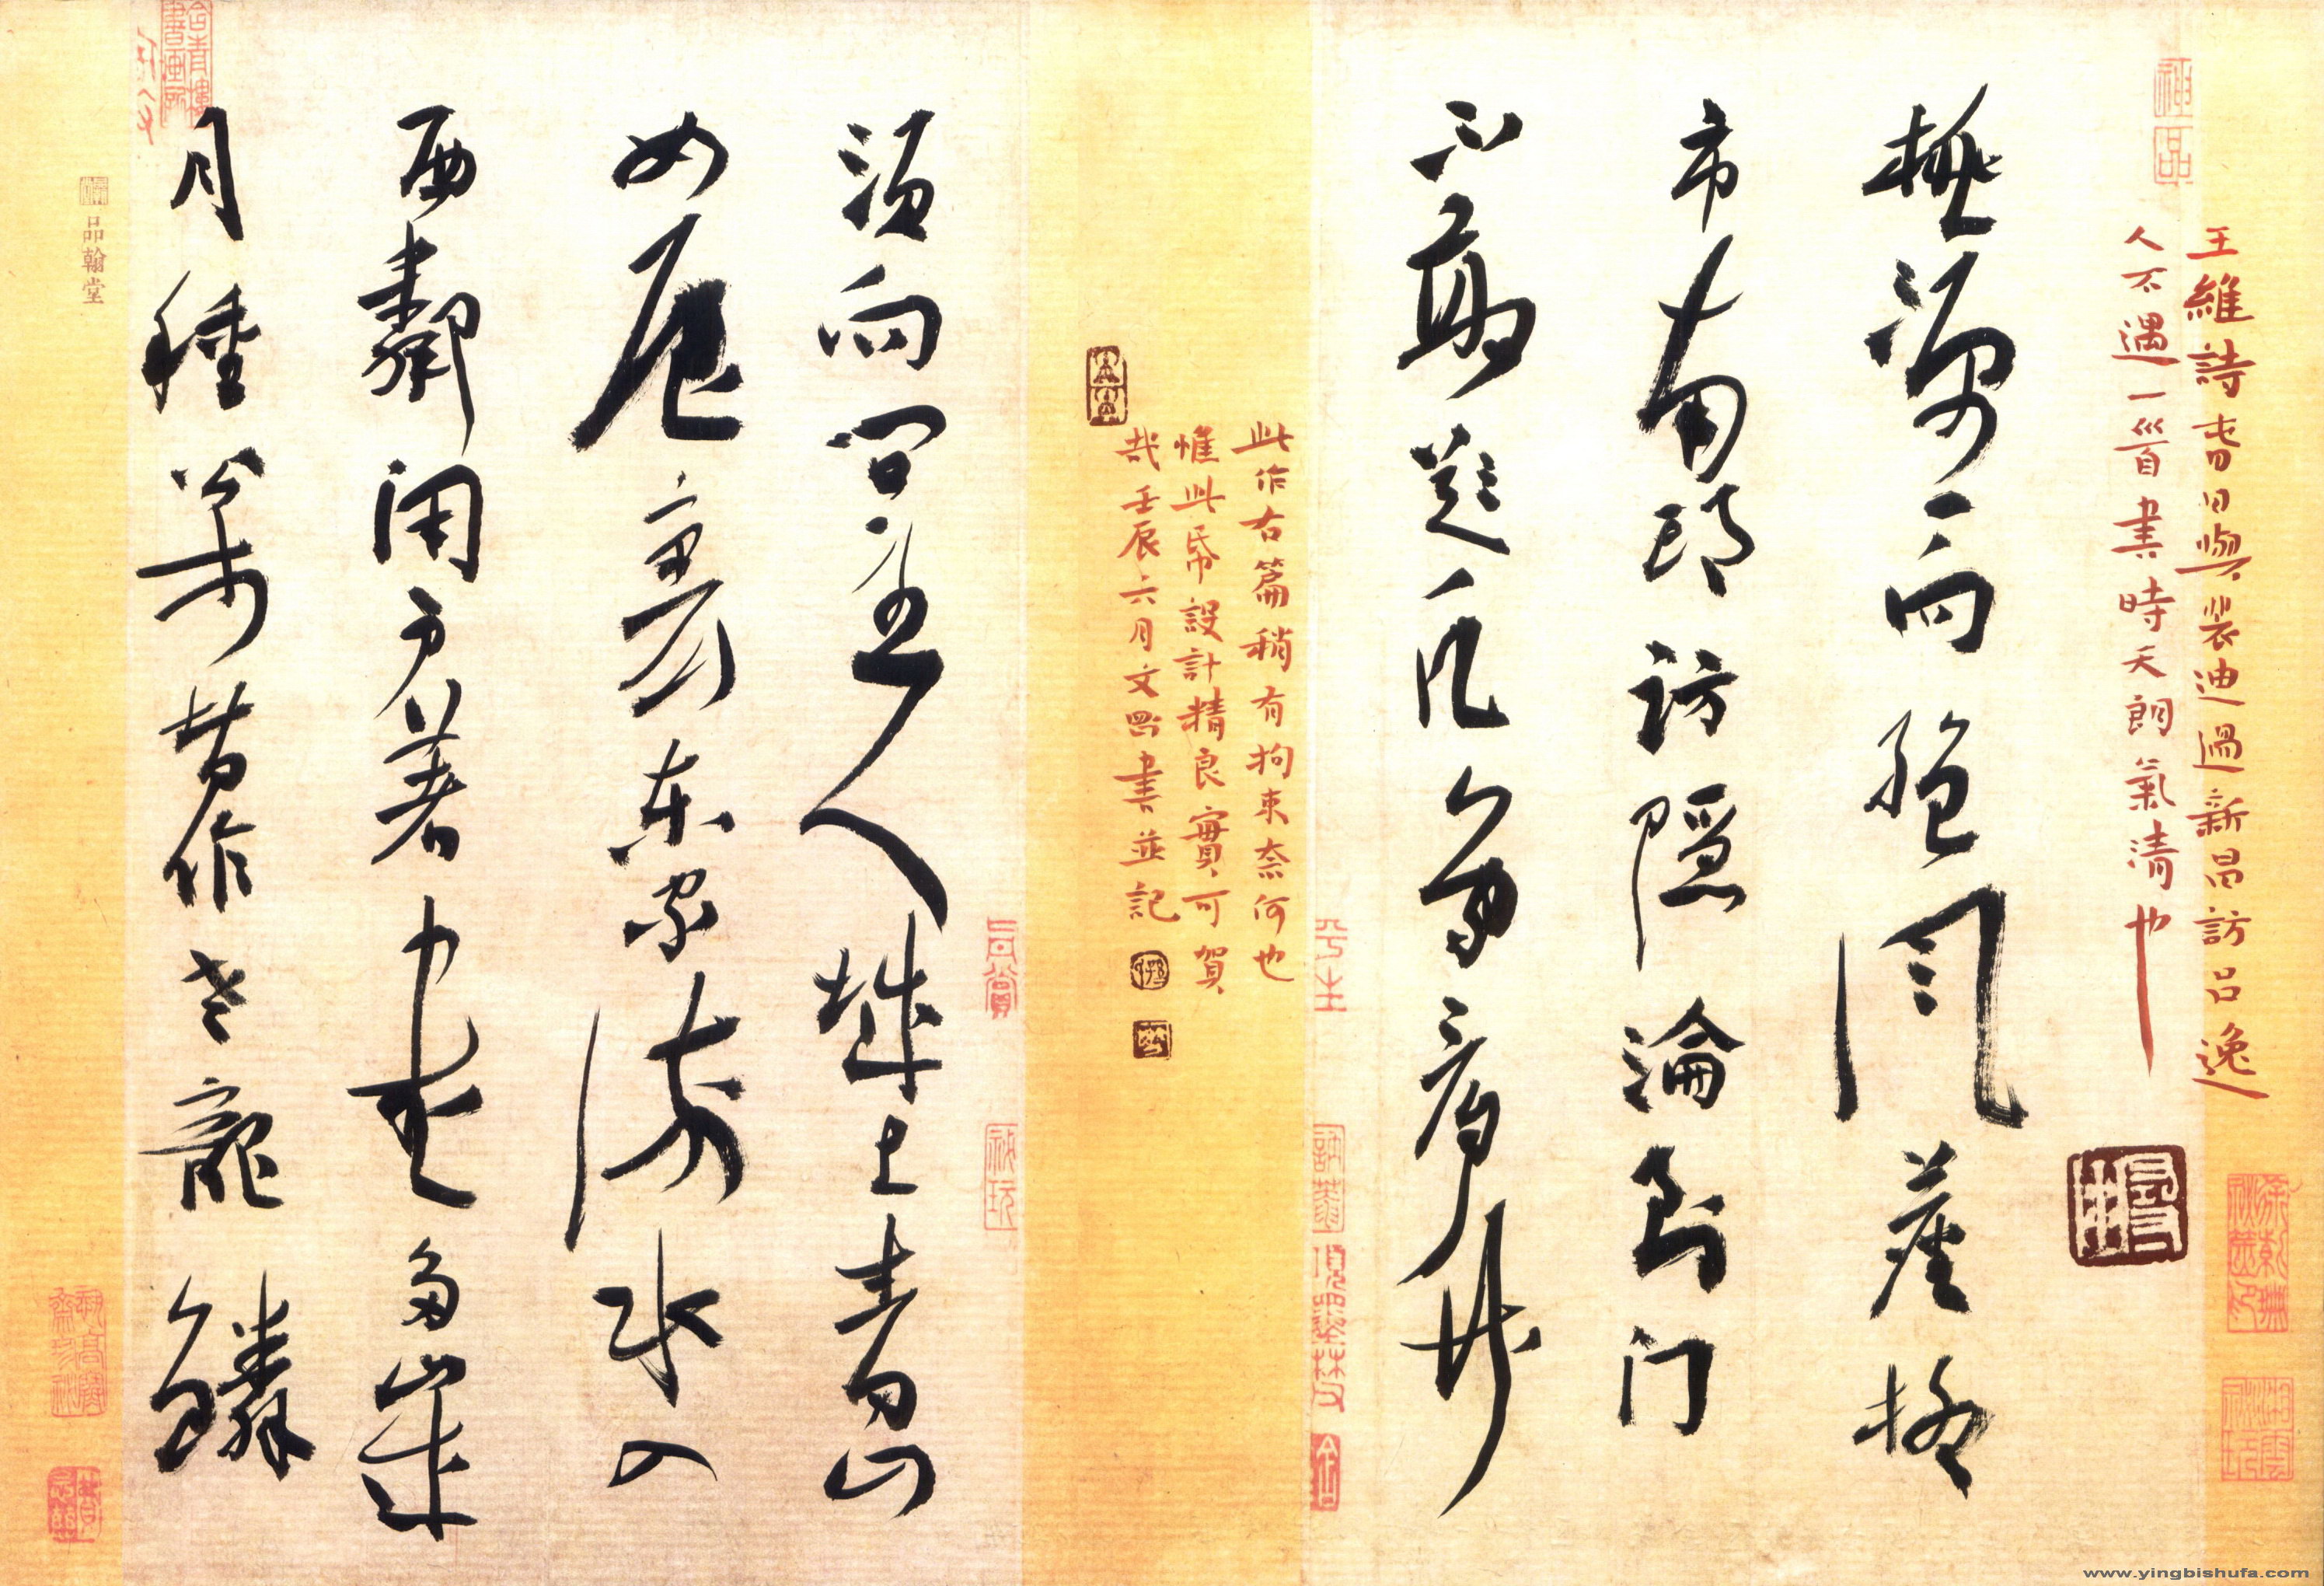 王維詩春日與裴迪過新昌訪呂逸
人不遇一首書時天朗氣清也
神品
桃源一向絕風塵柳
市南頭访隱淪到门
不敢題凡鳥看竹
此作右篇稍有拘束奈何也
惟此帋設計精良實可賀
哉壬辰六月文書並記
須向问主人城上青山
如屋裏东家流水入
西鄰闭户著書多歲
月種松皆作老龍鱗
品翰堂
www.yingbishufa.com